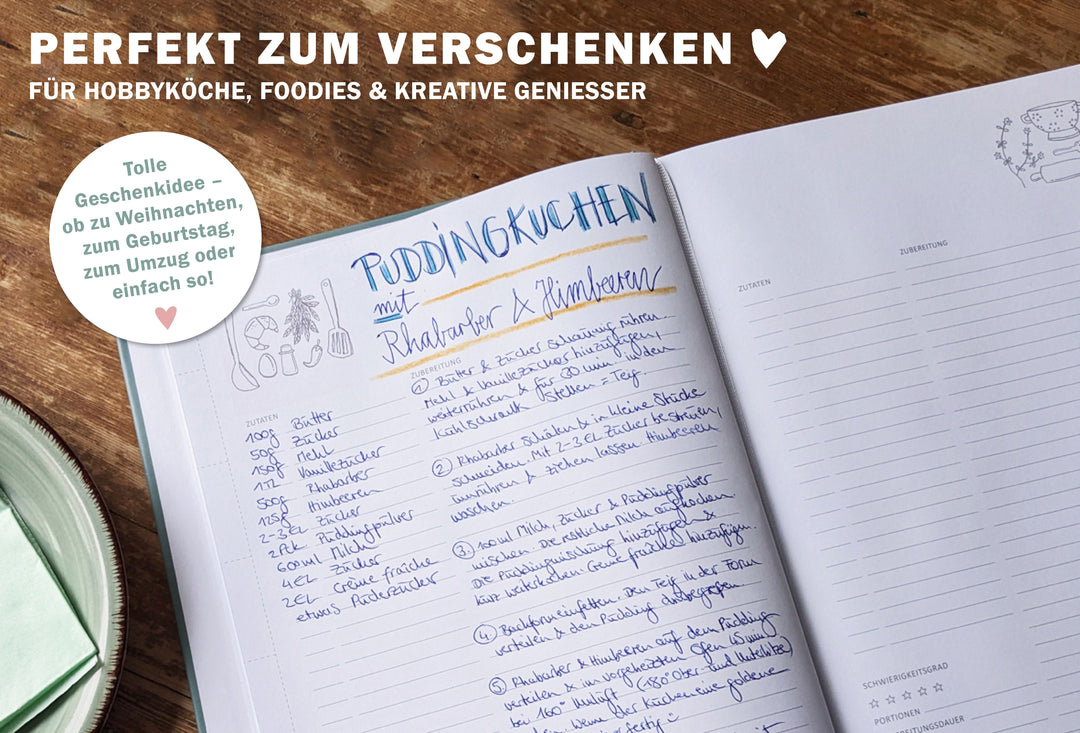 PERFEKT ZUM VERSCHENKEN
FÜR HOBBYKÖCHE, FOODIES & KREATIVE GENIESSER
Tolle
Geschenkidee –
ob zu Weihnachten,
zum Geburtstag,
zum Umzug oder
einfach so!
PUDDINGKUCHEN
mit
Rhabarber & Himbeeren
ZUTATEN
100g Butter
50g Zucker
150g Mehl
1TL Vanillezucker
500g Rhabarber
125g Himbeeren
2-3 EL Zucker
2Pck. Puddingpulver
600ml Milch
4EL Zucker
2EL Crème fraîche
etwas Puderzucker
ZUBEREITUNG
① Butter & Zucker schaumig rühren.
Mehl & Vanillezucker hinzufügen,
weiterrühren & für 30 min. in den
Kühlschrank stellen = Teig.
② Rhabarber schälen & in kleine Stücke
schneiden. Mit 2-3 EL Zucker bestreuen,
umrühren & ziehen lassen. Himbeeren
waschen.
③ 100ml Milch, Zucker & Puddingpulver
mischen. Die restliche Milch aufkochen.
Die Puddingmischung hinzufügen &
kurz weiterkochen. Creme fraiche hinzufügen.
④ Backform einfetten. Den Teig in der Form
verteilen & den Pudding
⑤ Rhabarber & Himbeeren auf dem Pudding
verteilen & im vorgeheizten Ofen 45min
bei 160° Umluft (180° Ober- und Unterhitze)
Wenn der Kuchen eine goldene
fertig
ZUTATEN
ZUBEREITUNG
SCHWIERIGKEITSGRAD
PORTIONEN